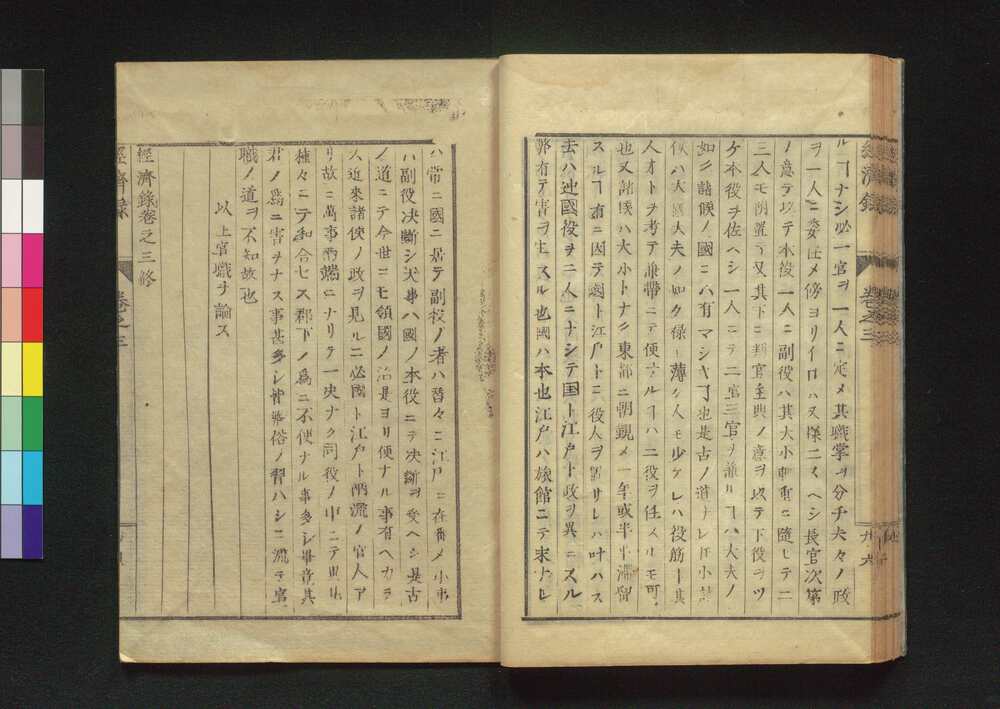 ルヿナシ必一官ヲ一人ニ定メ其職掌ヲ分チ夫々ノ政
ヲ一人ニ委任メ傍ヨリイロハヌ様ニスヘシ長官次第
ノ意ヲ以テ本役一人ニ副役ハ其大小軽重ニ隨レテ二
三人モ附置テ又其下ニ判官主典ノ意ヲ以テ下役ヲツ
ケ本役ヲ佐ヘシ一人ニテ二官三官ヲ兼ルヿハ大夫ノ
如シ諸候ノ國ニハ有マシキヿ也是古ノ道ナレ𪜈小諸
候ハ大國大夫ノ如ク禄ノ薄ク人モ少ケレハ役筋ト其
人オトヲ考テ兼帶ニテ便ナルヿハ二役ヲ任スルモ可
也又諸候ハ大小トナク東都ニ朝覲メ一年或半年滞留
スルヿ有ニ因テ國ト江戸トニ役人ヲ置サレハ叶ハス
去ハ迚國役ヲ二人ニナシテ国ト江戸ト政ヲ異ニスル
弊有テ害ヲ生スル也國ハ本也江戸ハ旅館ニテ末ナレ
經濟録
卷之三
ハ常ニ國ニ居テ副役ノ者ハ替々ニ江戸ニ在番メ小事
ハ副役決斷シ大事ハ國ノ本役ニテ決斷ヲ受ヘシ是古
ノ道ニテ今世ニモ領國ノ治是ヨリ便ナル事有ヘカラ
ス近來諸侯ノ政ヲ見ルニ必國ト江戸ト兩流ノ官人ア
リ故ニ萬事兩端ニナリテ一決ナク同役ノ中ニテ
種々ニテ和合セス郡下ノ爲ニ不便ナル事多シ畢竟其
君ノ爲ニ害ヲナス事甚多シ皆鄙俗ノ習ハシニ流テ官
職ノ道ヲ不知故也
以上官職ヲ論ス
經濟錄卷之三終
經濟錄
卷之三